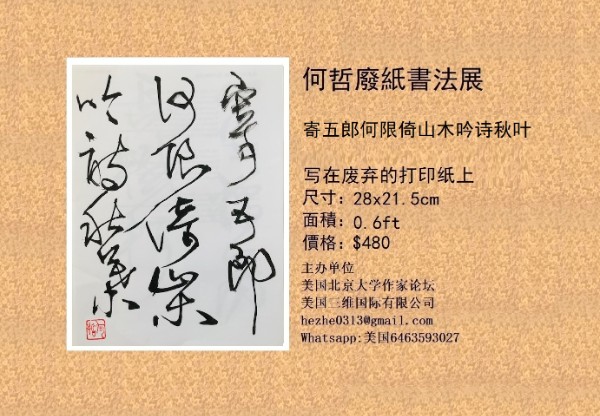 寄五郎
何限倚山木
吟詩秋葉
何哲廢紙書法展
寄五郎何限倚山木吟诗秋叶
写在废弃的打印纸上
尺寸：28x21.5cm
面積：0.6ft
價格：$480
主办单位
美国北京大学作家论坛
美国三维国际有限公司
hezhe0313@gmail.com
Whatsapp:美国6463593027